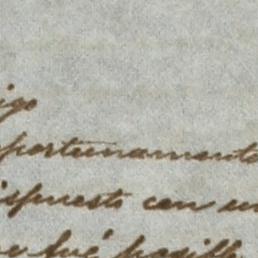 igo
portunamente
ispuesto con un
e fué posible